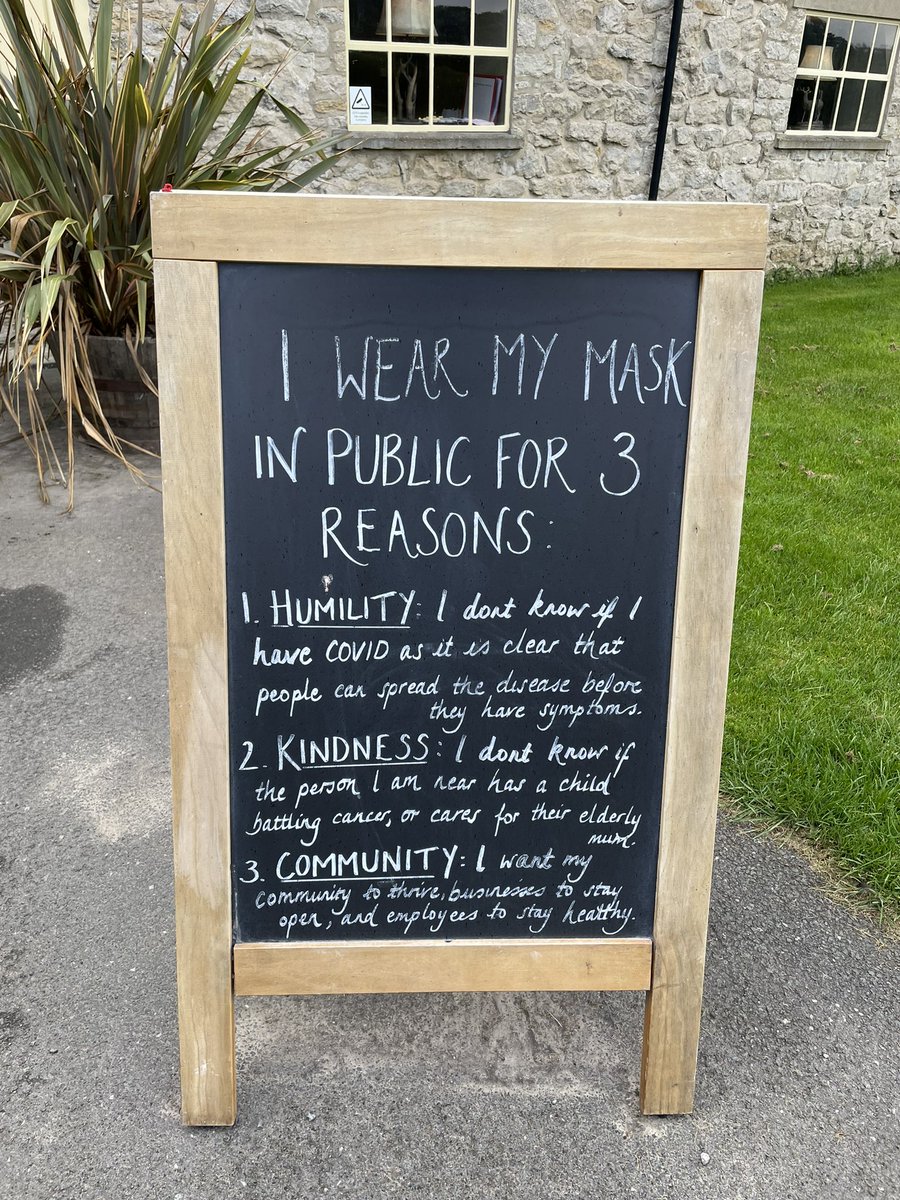 I WEAR MY MASK
IN PUBLIC FOR 3
REASONS:
1. HUMILITY: I dont know if I
have COVID as it is clear that
people can spread the disease before
they have symptoms.
2. KINDNESS: I dont know if
the person I am near has a child
battling cancer, or cares for their elderly
mum.
3. COMMUNITY: I want my
community to thrive, businesses to stay
open, and employees to stay healthy.